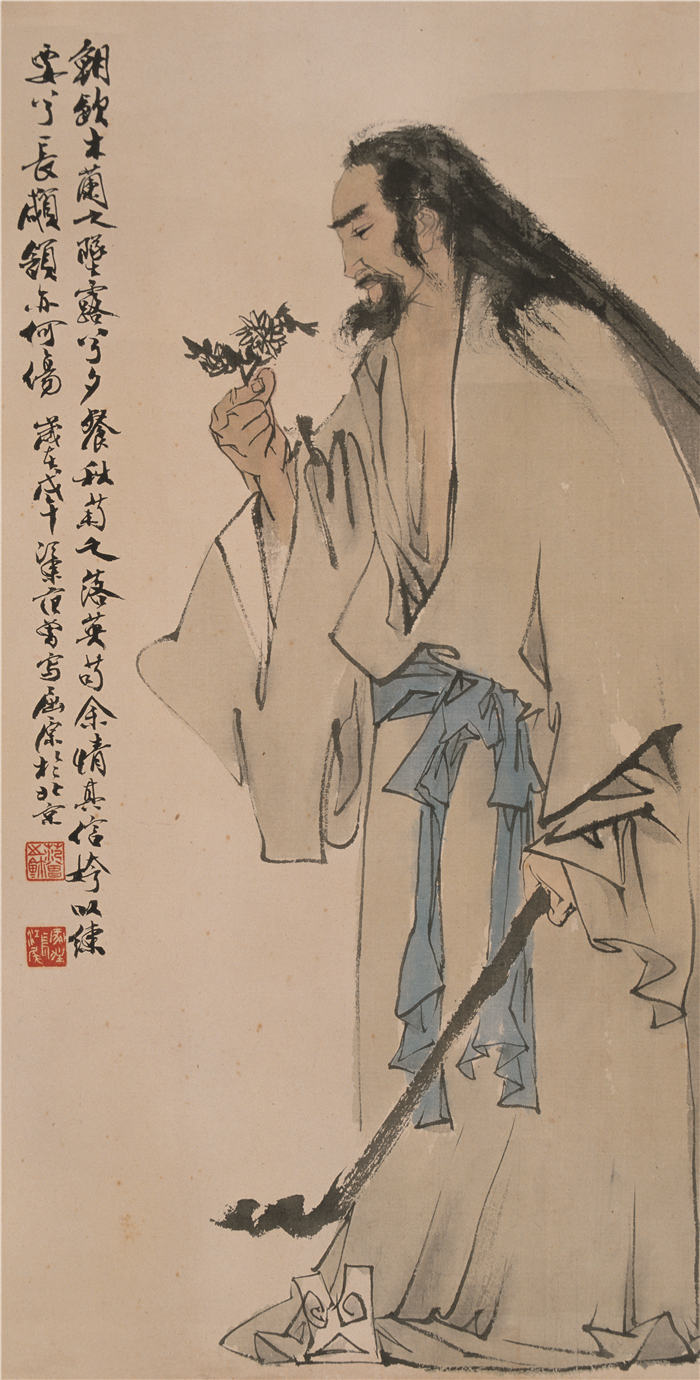 朝飲木蘭之墜露兮夕餐秋菊之落英苟余情其信姱以練
要兮長顑頷亦何傷 歲在戊午 范曾寫屈原於北京